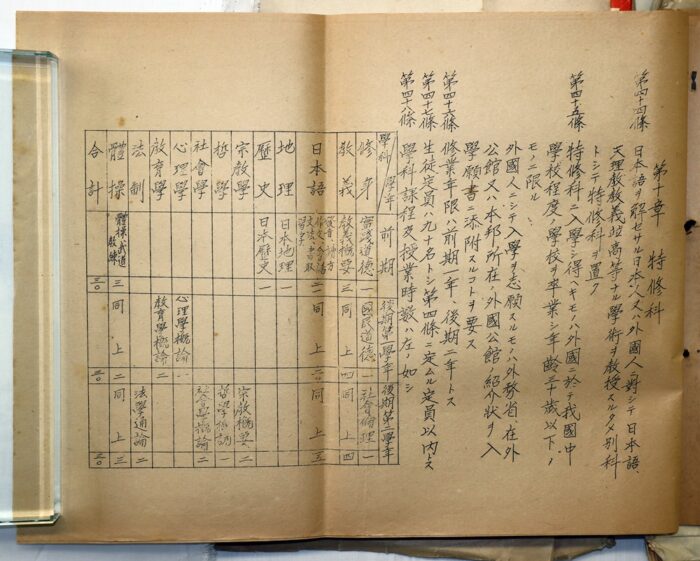 第十章 特修科
第四十四條 日本語ヲ解セサル日本人又ハ外國人ニ對シテ日本語、
天理教教義竝高等ナル學術ヲ教授スルタメ別科
トシテ特修科ヲ置ク
第四十五條 特修科ニ入學シ得ヘキモノハ外國ニ於テ我國中
學校程度ノ學校ヲ卒業シ年齡三十歲以下ノ
モノニ限ル
外國人ニシテ入學ヲ志願スルモノハ外務省在外
公館又ハ本邦所在ノ外國公館ノ紹介狀ヲ入
學願書ニ添附スルコトヲ要ス
第四十六條 修業年限ハ前期一年、後期二年トス
第四十七條 生徒定員ハ九十名トシ第四條ニ定ムル定員以內トス
第四十八條 學科課程及授業時數ハ左ノ如シ
學科 學年 前期 後期第一學年 後期第二學年
修身 實踐道德 一 國民道德 一 社會倫理 一
教義 教義概要 三 同上 四 同上 四
日本語 同上 二〇 同上
地理 日本地理 一
歷史 日本歷史 一
宗教學 宗教概要 二
哲學 哲學概論 一
社會學 社會學概論 二
心理學 心理學概論 一
教育學 教育學概論 二
法制 法學通論 二
體操 體操 武道 教練 三 同上 二 同上 三
合計 三〇 三〇 三〇